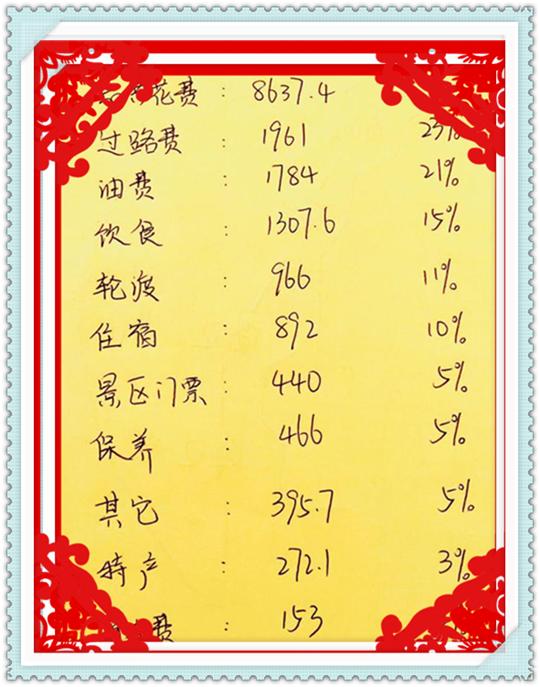 花费 : 8637.4
过路费 : 1961 23%
油费 : 1784 21%
饮食 : 1307.6 15%
轮渡 : 966 11%
住宿 : 892 10%
景区门票 : 440 5%
保养 : 466 5%
其它 : 395.7 5%
特产 : 272.1 3%
费 : 153